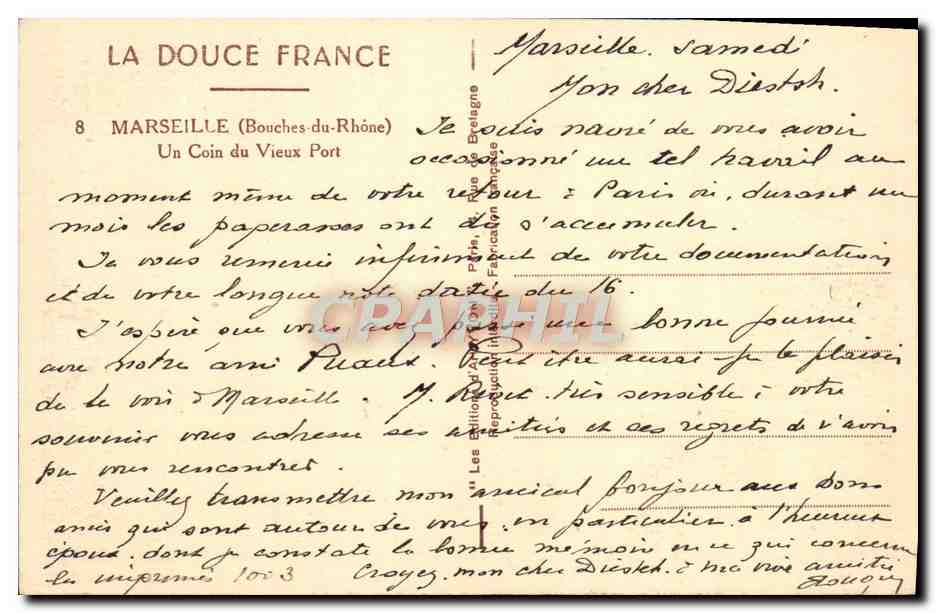 LA DOUCE FRANCE
8 MARSEILLE (Bouches-du-Rhône)
Un Coin du Vieux Port
Marseille. Samedi
Mon cher Diestsh.
Je suis navré de vous avoir
occasionné un tel travail au
moment même de votre retour à Paris où, durant un
mois les paperasses ont dû s'accumuler.
Je vous remercie infiniment de votre documentation
et de votre longue note datée du 16.
J'espère que vous avez passé une bonne journée
avec notre ami Puaux. Peut être aurai-je le plaisir
de le voir à Marseille. M. très sensible à votre
souvenir vous adresse ses amitiés et ses regrets de n'avoir
pu vous rencontrer.
Veuillez transmettre mon amical bonjour aux bons
amis qui sont autour de vous, en particulier à l'heureux
époux, dont je constate la bonne mémoire en ce qui concerne
les imprimés 1003 Croyez, mon cher Diestsh, à ma vive amitié
"Les Editions d'Art Paris, Rue de Bretagne
Reproduction interdite Fabrication Française
CPARPHIL